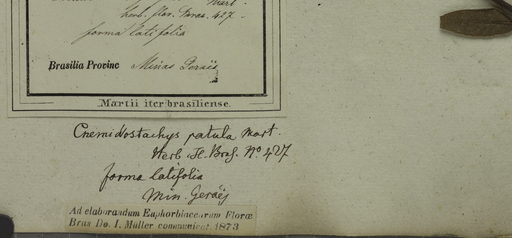 Mart.
herb. flor. Bras. 427.
forma latifolia
Brasilia Provinc Minas Geraës
Martii iter brasiliense.
Cnemidostachys patula Mart.
Herb. Fl. Bras. No 427
forma latifolia
Min. Geraës
Ad elaborandum Euphorbiacearum Floræ
Bras Do. I. Müller communicat. 1873